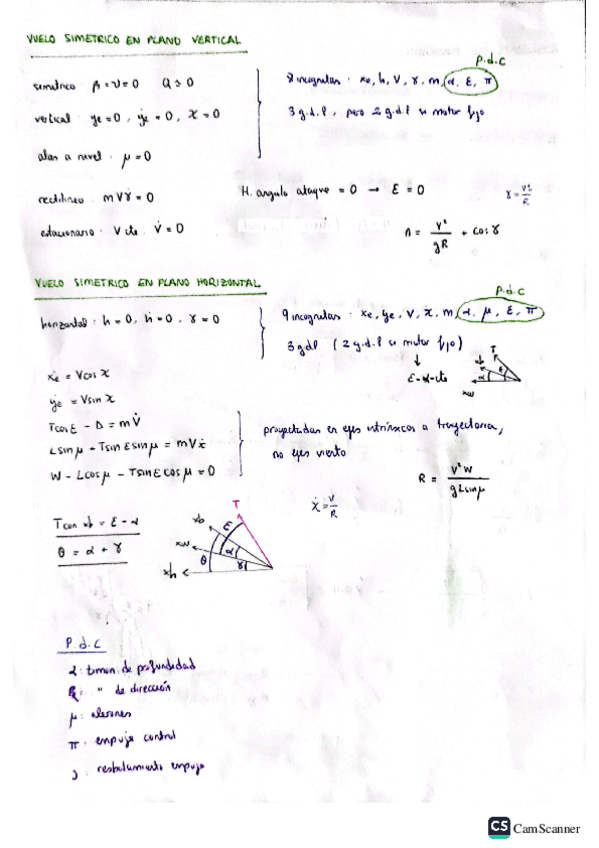 VUELO SIMETRICO EN PLANO VERTICAL
P.d.C
simetrico β=ν=0 Q=0
8 incognitas: xe, h, V, γ, m, α, ε, π
vertical: ye=0, ẏe=0, χ=0
3 g.d.l, pero 2 g.d.l si motor fijo
alas a nivel: μ=0
rectilineo: mVγ̇=0
H. angulo ataque = 0 → ε=0
γ̇=V/R
estacionario: V cte. V̇=0
n = V²/gR + cos γ
VUELO SIMETRICO EN PLANO HORIZONTAL
P.d.C
horizontal: h=0, ḣ=0, γ=0
9 incognitas: xe, ye, V, χ, m, α, μ, ε, π
3 gdl (2 g.d.l si motor fijo)
ε-α=cte
T
xb
α
ε
xw
ẋe = Vcos χ
ẏe = Vsin χ
Tcos ε - D = mV̇
Lsin μ + Tsin ε sin μ = mVχ̇
W - Lcos μ - Tsin ε cos μ = 0
proyectadas en ejes intrínsecos a trayectoria,
no ejes viento
R = V²W / gLsin μ
χ̇ = V/R
T con xb = ε - α
θ = α + γ
T
xb
ε
xw
α
θ
γ
xh
P.d.C
α: timon de profundidad
" de dirección
μ: alerones
π: empuje control
resbalamiento empuje
CS CamScanner